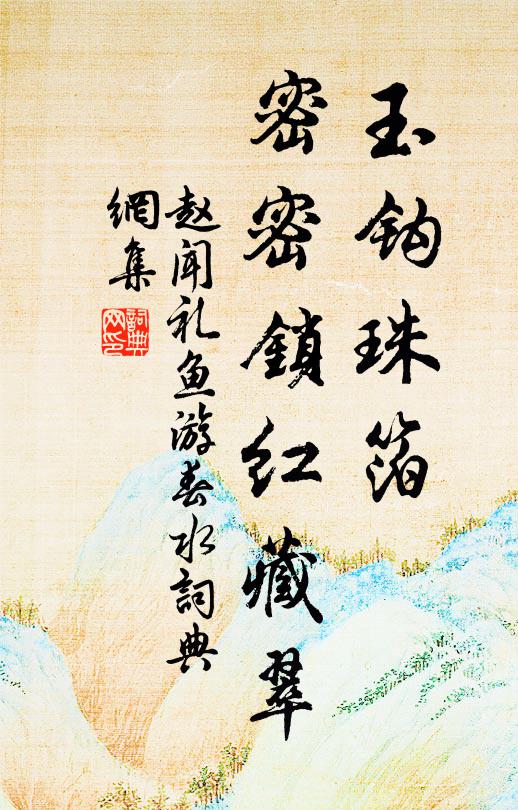 玉钩珠箔
密密鎖红藏翠
赵闻礼鱼游春水詞典
網集
詞典
网印